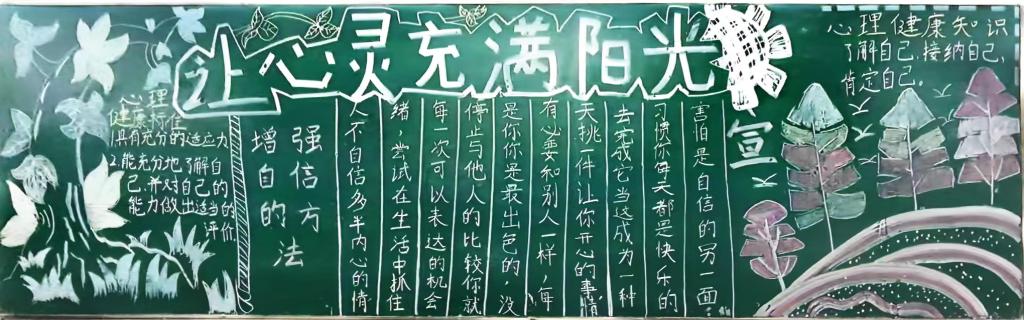 让心灵充满阳光
心理
健康标准
1.具有充分的适应力
2.能充分地了解自
己，并对自己的
能力做出适当的
评价
增强
自信
的方
法
人不自信多半内心的情
绪，尝试在生活中抓住
每一次可以表达的机会
停止与他人的比较你就
是你你是最出色的，没
有必要和别人一样，每
天挑一件让你开心的事情
去完成它当这成为一种
习惯你每天都是快乐的
害怕是自信的另一面
宣
心理健康知识
了解自己，接纳自己，
肯定自己。